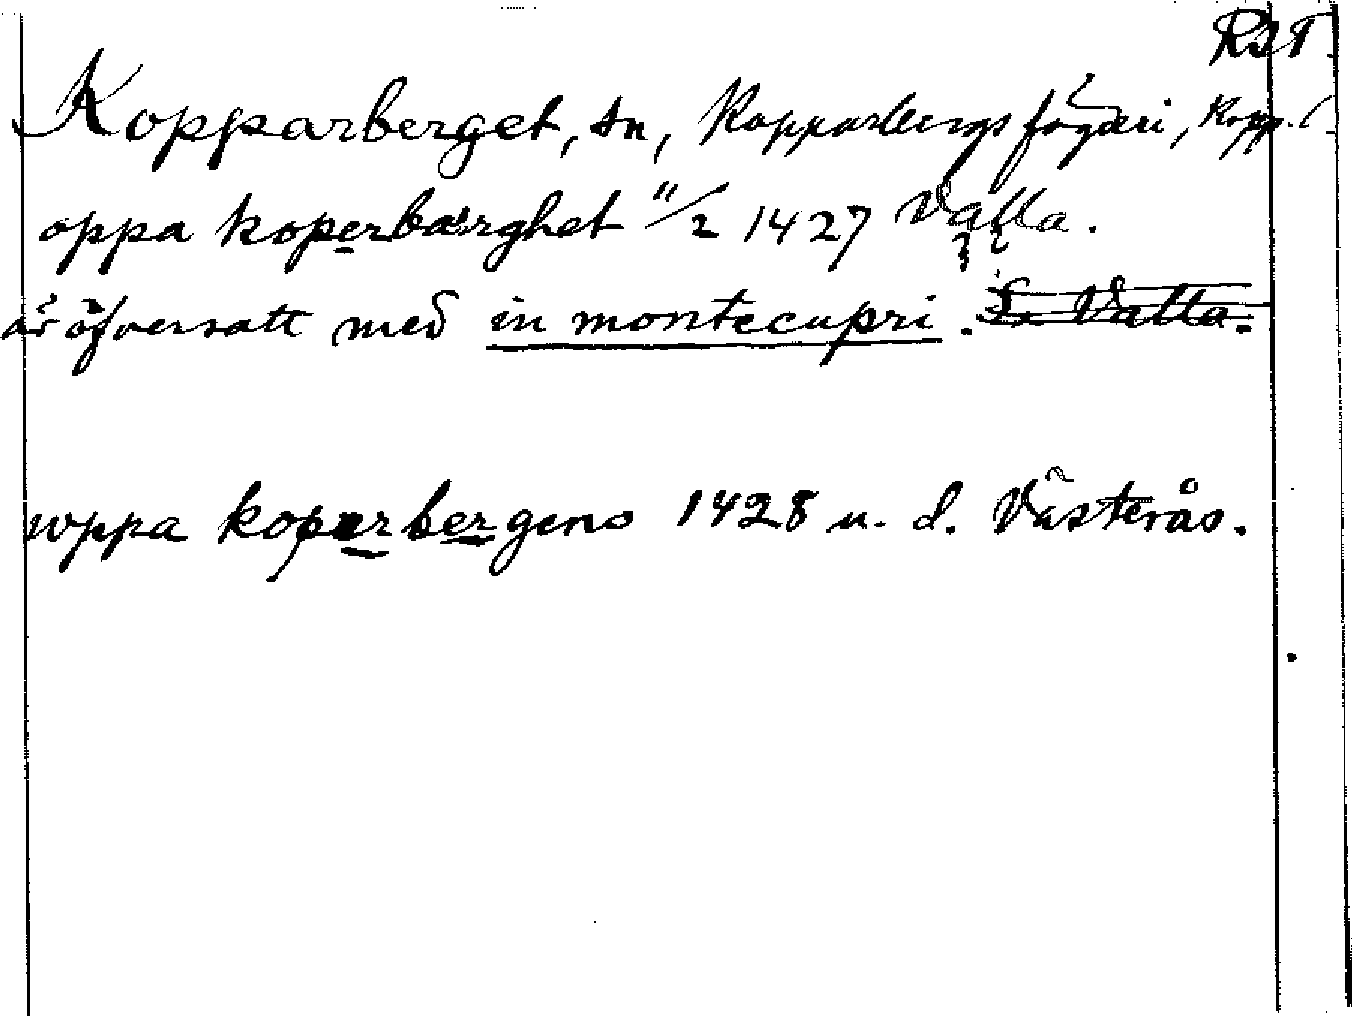 Kopparberget, sn, Kopparbergs fögderi, Kopp. l
oppa koperbærghet 11/2 1427 Valla.
är öfversatt med in montecupri. S. Valla.
uppa koperbergeno 1428 u. d. Västerås.